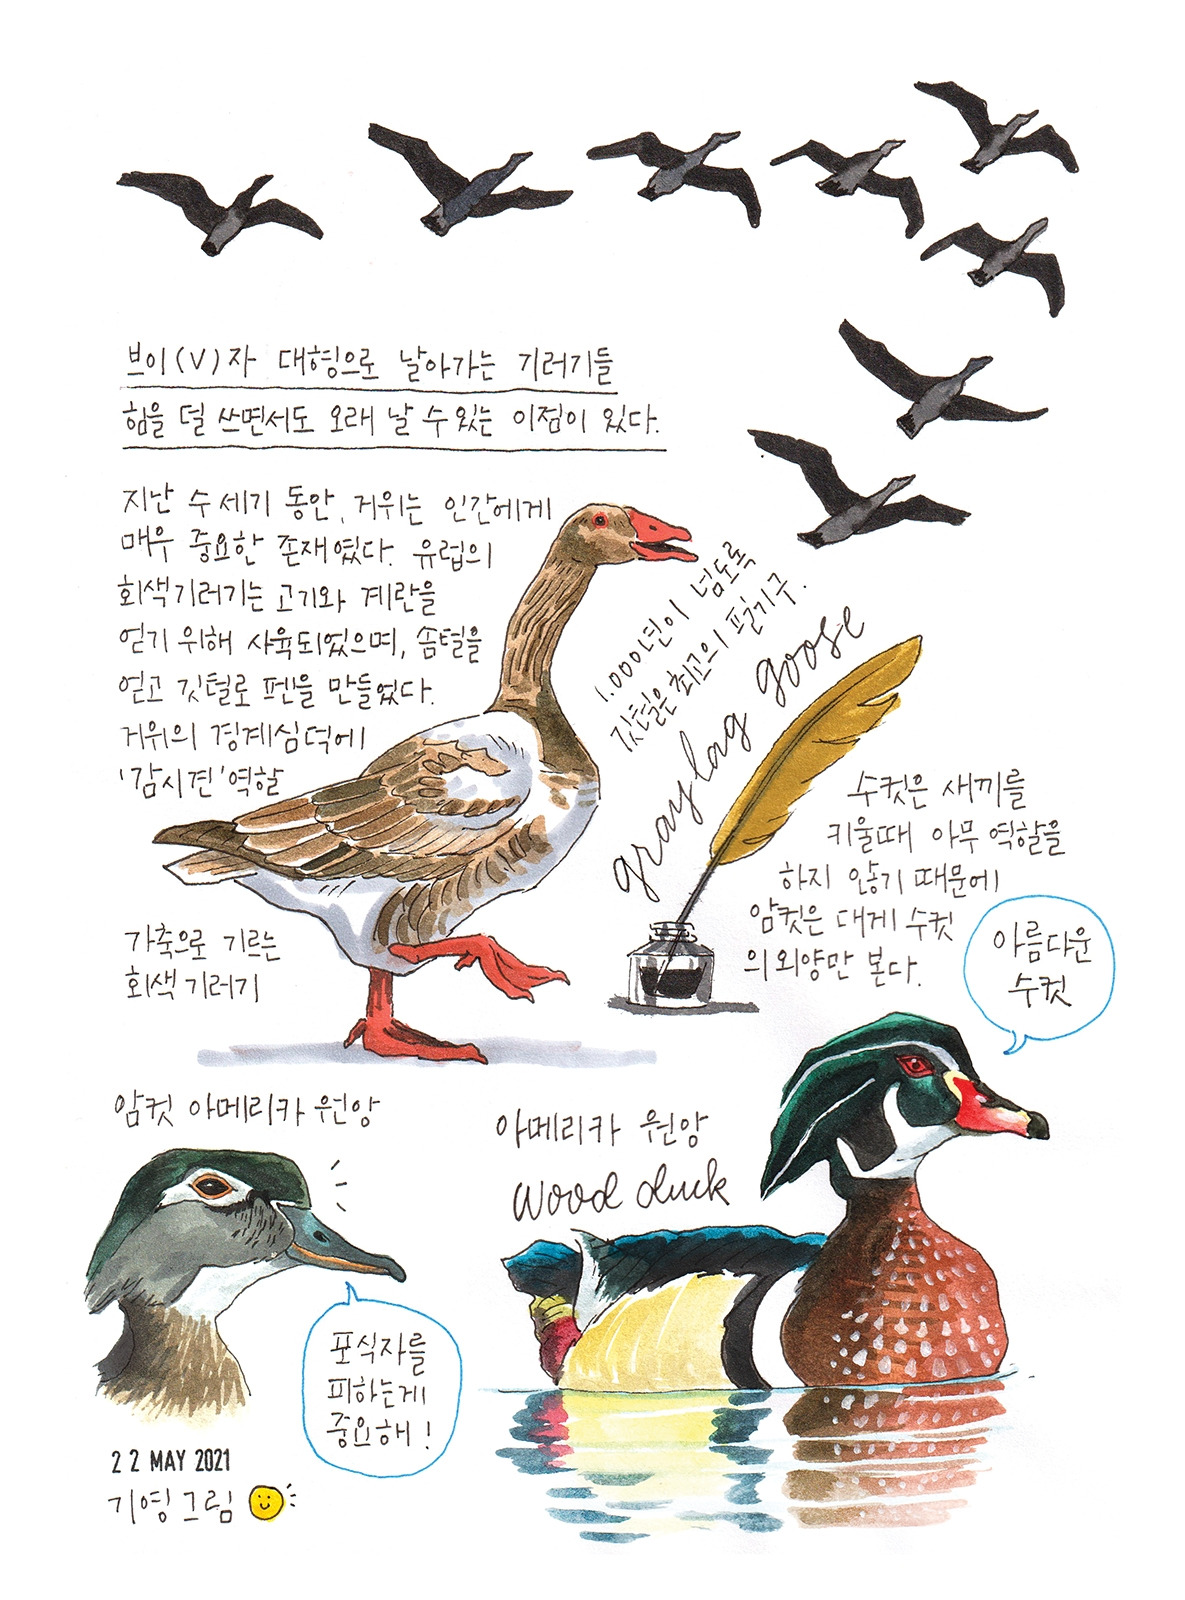 브이(V)자 대형으로 날아가는 기러기들
힘을 덜 쓰면서도 오래 날 수 있는 이점이 있다.
지난 수 세기 동안, 거위는 인간에게
매우 중요한 존재였다. 유럽의
회색기러기는 고기와 계란을
얻기 위해 사육되었으며, 솜털을
얻고 깃털로 펜을 만들었다.
거위의 경계심 덕에
'감시견' 역할
1.000년이 넘도록
깃털은 최고의 필기구.
graylag goose
수컷은 새끼를
키울때 아무 역할을
하지 않기 때문에
암컷은 대게 수컷
의 외양만 본다.
아름다운
수컷
가축으로 기르는
회색 기러기
암컷 아메리카 원앙
아메리카 원앙
wood duck
포식자를
피하는게
중요해!
22 MAY 2021
기영그림